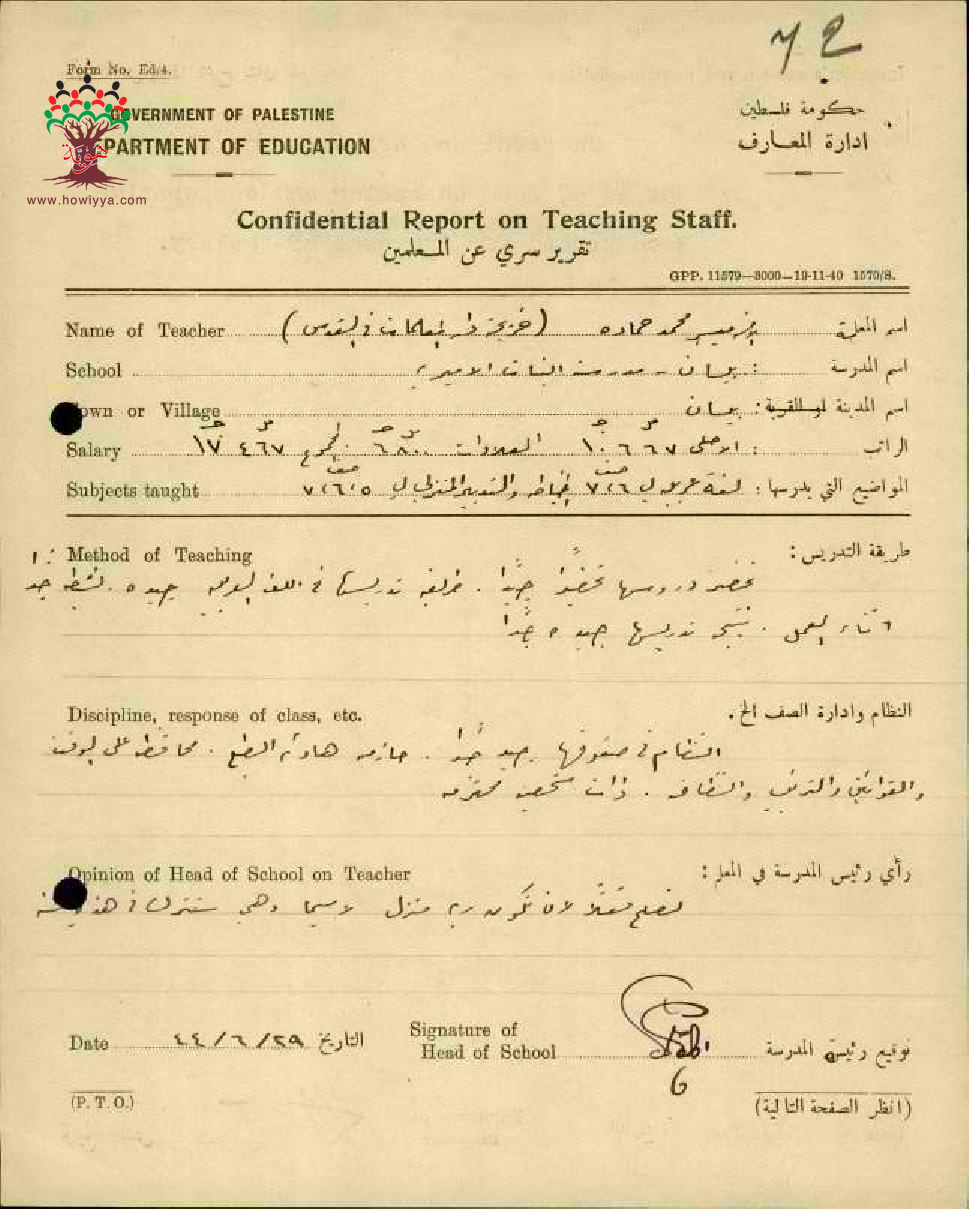 72
Form No. Ed/4.
GOVERNMENT OF PALESTINE
حكومة فلسطين
DEPARTMENT OF EDUCATION
ادارة المعارف
www.howiyya.com
Confidential Report on Teaching Staff.
تقرير سري عن المعلمين
GPP. 11579—3000—19-11-40 1570/8.
Name of Teacher محمد حماده (خريجة دار المعلمات في القدس) اسم المعلمة
School بيسان - مدرسة البنات الاميرية : اسم المدرسة
Town or Village بيسان : اسم المدينة او القرية
Salary الراتب : الاصلي ١٠ ٦٦٧ العلاوات ٦ ٨٠٠ المجموع ١٧ ٤٦٧
Subjects taught المواضيع التي يدرسها : لغة عربية في ٦،٧ خياطة والتدبير المنزلي في ٥،٦،٧
Method of Teaching طريقة التدريس :
تحضر دروسها تحضيرًا جيدًا . طريقة تدريسها في اللغة العربية جيده . نشيطه جد
اثناء العمل . نتيجة تدريسها جيده جدًا
Discipline, response of class, etc. النظام وادارة الصف الخ .
النظام في صفوفها جيد جدًا . حازمه هادئه الطبع . محافظه على الوقت
والقوانين والترتيب والنظافه . ذات شخصيه محترمه
Opinion of Head of School on Teacher رأي رئيس المدرسة في المعلم :
تصلح لان تكون ربة منزل لا سيما وهي ستترك في هذه السنة
Date ٢٩/٦/٤٤ التاريخ
Signature of
Head of School توقيع رئيسة المدرسة
6
(P. T. O.)
(انظر الصفحة التالية)